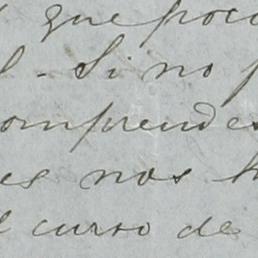 que poco
l. Si no p
omprendes
es nos h
l curso de